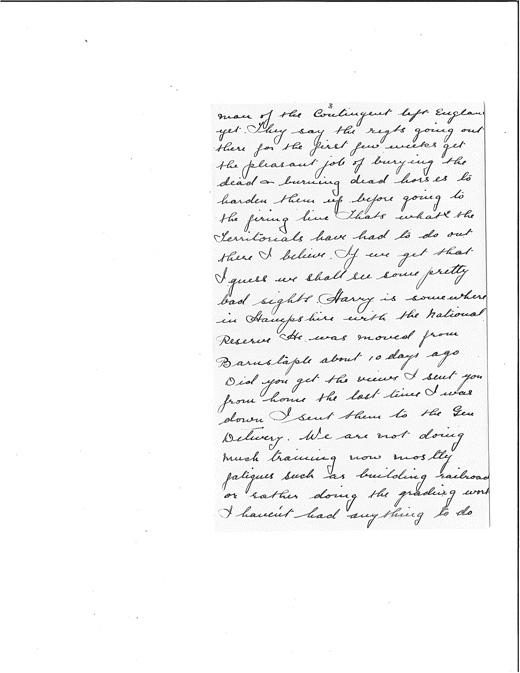 3
man of the Contingent left Englan
yet. They say the regts going out
there for the first few weeks get
the pleasant job of burying the
dead & burning dead horses to
harden them up before going to
the firing line Thats what the
Territorials have had to do out
there I believe. If we get that
I guess we shall see some pretty
bad sights. Harry is somewhere
in Hampshire with the National
Reserve He was moved from
Barnstaple about 10 days ago
Did you get the views I sent you
from home the last time I was
down I sent them to the Gen
Delivery. We are not doing
much training now mostly
fatigues such as building railroad
or rather doing the grading work
I haven't had anything to do